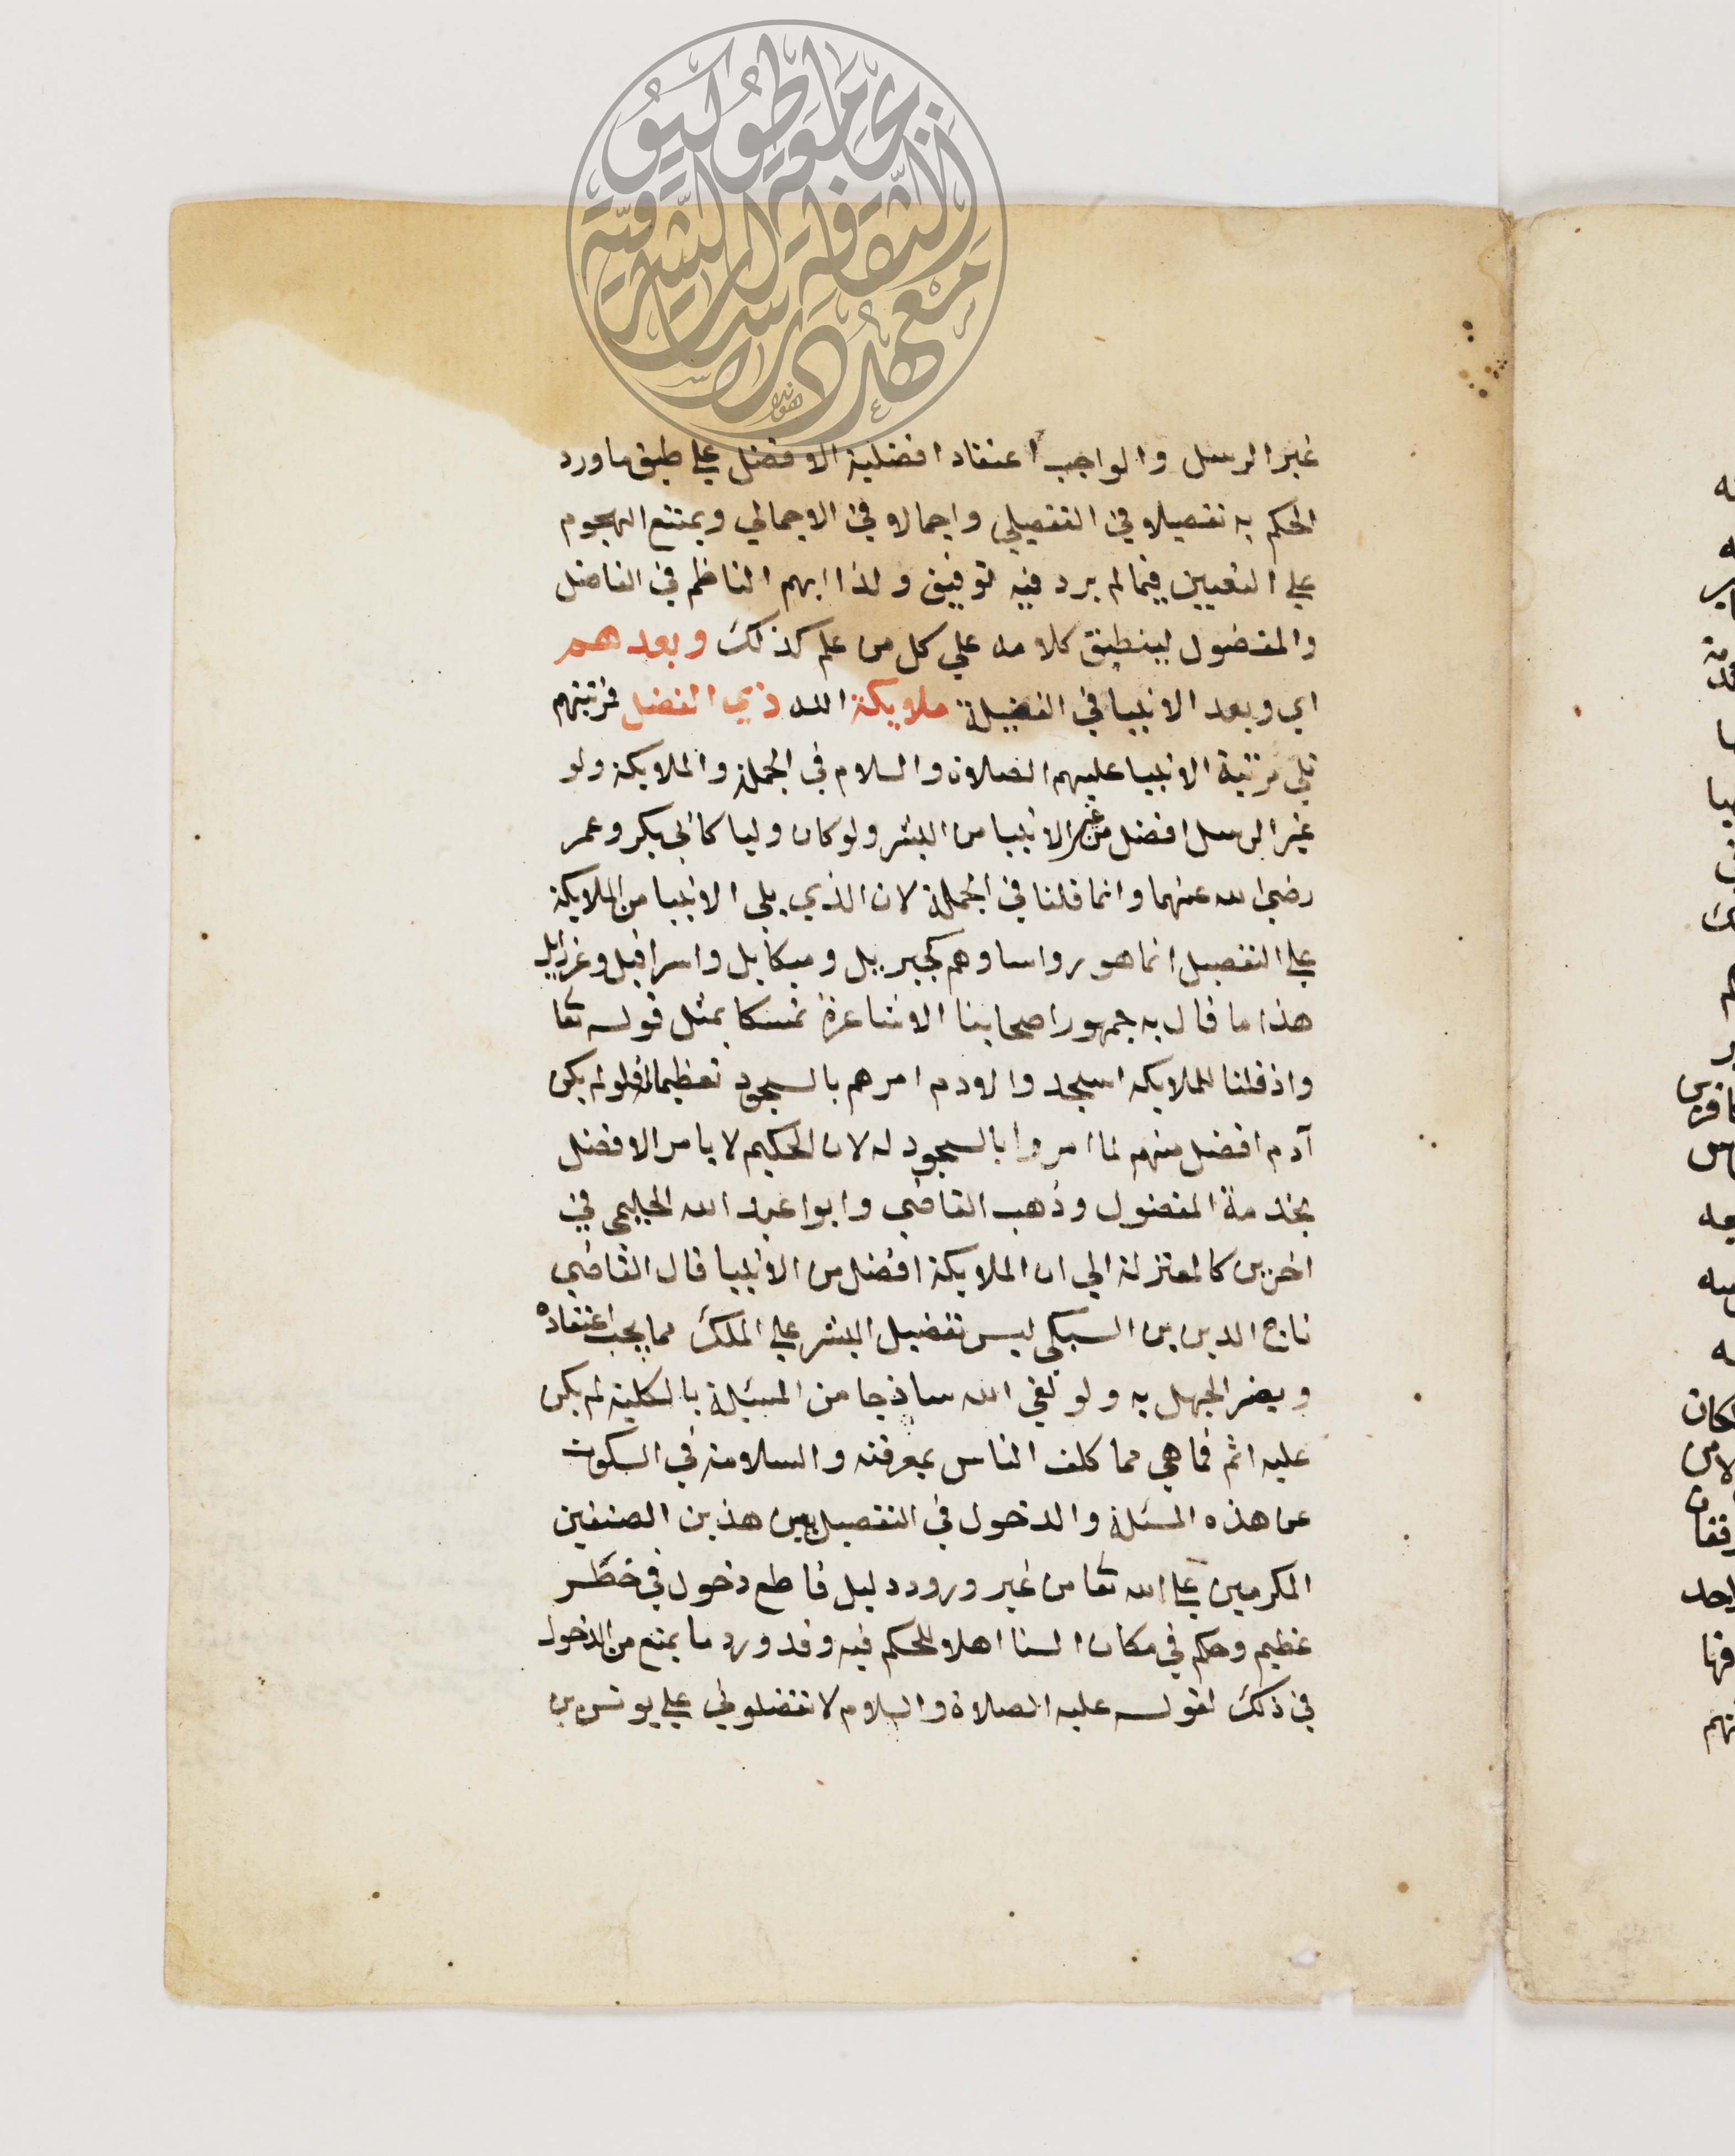 غير الرسل والواجب اعتقاد افضلية الافضل علي طبق ما ورد
الحكم به تفصيلا في التفصيلي واجمالا في الاجمالي ويمتنع الهجوم
علي التعيين فيما لم يرد فيه توقيف ولذا ابهم الناظم في الفاضل
والمفضول لينطبق كلامه علي كل من علم كذلك وبعدهم
اي وبعد الانبيا في الفضيلة ملايكة الله ذي الفضل فمرتبتهم
تلي مرتبة الانبيا عليهم الصلاة والسلام في الجملة والملايكة ولو
غير الرسل افضل من غير الانبيا من البشر ولو كان وليا كابي بكر وعمر
رضي الله عنهما وانما قلنا في الجملة لان الذي يلي الانبيا من الملايكة
علي التفصيل انما هو رواساوهم كجبريل وميكايل واسرافيل وعزرايل
هذا ما قال به جمهور اصحابنا الاشاعرة تمسكا بمثل قوله تعا
واذ قلنا للملايكه اسجدوا لادم امرهم بالسجود تعظيما له فلو لم يكن
آدم افضل منهم لما امروا بالسجود له لان الحكيم لا يامر الافضل
بخدمة المفضول وذهب القاضي وابوا عبد الله الحليمي في
اخرين كالمعتزلة الي ان الملايكة افضل من الانبيا قال القاضي
تاج الدين بن السبكي ليس تفضيل البشر علي الملك مما يجب اعتقاده
ويضر الجهل به ولو لقي الله ساذجا من المسئلة بالكلية لم يكن
عليه اثم فما هي مما كلف الناس بمعرفته والسلامة في السكوت
عن هذه المسئلة والدخول في التفصيل بين هذين الصنفين
المكرمين علي الله تعا من غير ورود دليل قاطع دخول في خطر
عظيم وحكم في مكان السنا اهلا للحكم فيه وقد ورد ما يمنع من الدخول
في ذلك لقوله عليه الصلاة والسلام لا تفضلوني علي يونس بن